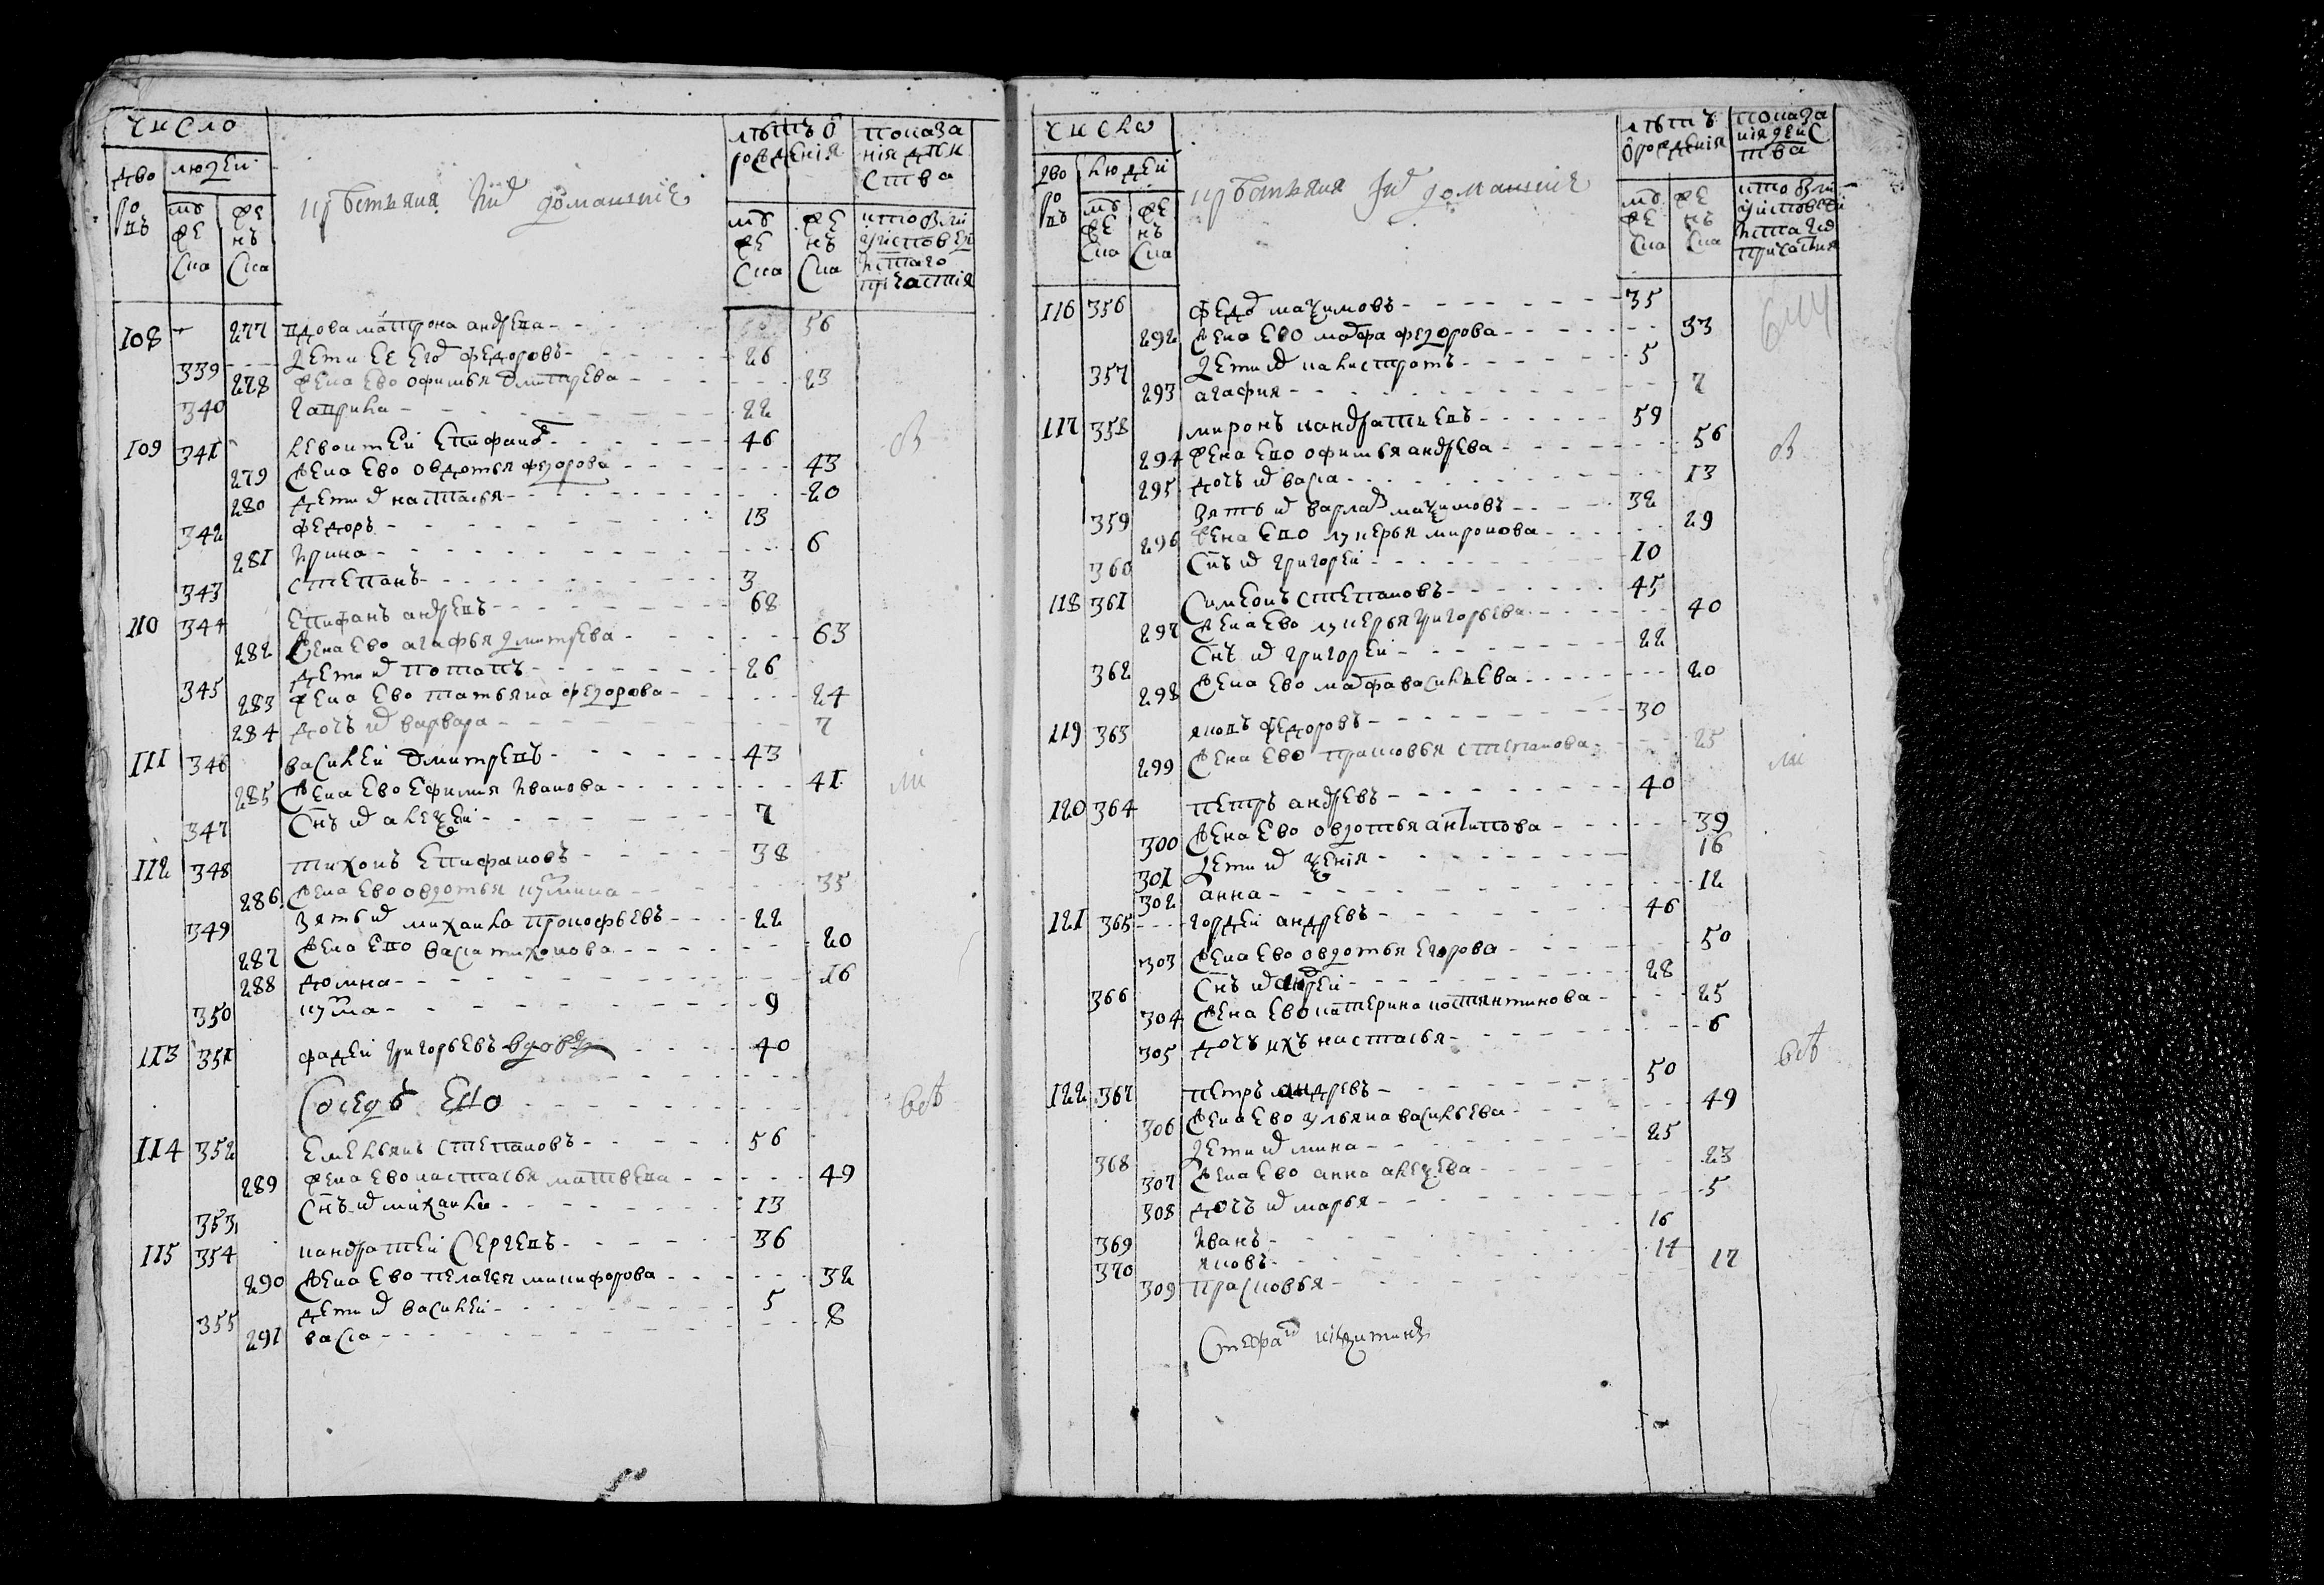 число
дворовъ людей
мужеска женска
крестьяня ихъ домашнiе
лѣтъ о рожденiя
мужеска женска
показанiя дѣйства
кто были у исповеди и с͠таго причастiя
108 277 вдова матрона андрева 56
339 дети ее егоръ федоровъ 26
278 жена ево офимья дмитрева 23
340 гаврила 22
109 341 левонтей епифановъ 46
279 жена ево овдотья федорова 43
280 дети их настасья 20
342 федоръ 13
281 ирина 6
343 степанъ 3
110 344 епифанъ андревъ 68
282 жена ево агафья дмитрева 63
345 дети их потапъ 26
283 жена ево татьяна федорова 24
284 дочь их варвара 7
111 346 василей дмитревъ 43
285 жена ево ефимия иванова 41
347 снъ их алеѯей 7
112 348 тихонъ епифановъ 38
286 жена ево овдотья кузмина 35
349 зять их михаила прокофьевъ 22
287 жена ево васса тихонова 20
288 домна 16
350 кузма 9
113 351 фадей григорьевъ вдовъ 40
Соседъ ево
114 352 емельянъ степановъ 56
289 жена ево настасья матвева 49
353 снъ их михаила 13
115 354 кандратей сергевъ 36
290 жена ево пелагея никифорова 32
355 дети их василей 5
291 васса 8
числω
дворовъ людей
мужеска женска
крестьяня их домашнiе
лѣтъ о рожденiя
мужеска женска
показанiя действа
кто были у исповеди и с͠таго причастия
116 356 федоръ маѯимовъ 35
292 жена ево марфа федорова 33
357 дети их калистротъ 5
293 агафия 7
117 358 миронъ кандратиевъ 59
294 жена ево офимья андрева 56
295 дочь их васса 13
359 зять их варламъ маѯимовъ 32
296 жена ево лукерья миронова 29
360 снъ их григорей 10
118 361 симеонъ степановъ 45
297 жена ево лукерья григорьева 40
362 снъ их григорей 22
298 жена ево марфа васильева 20
119 363 яковъ федоровъ 30
299 жена ево прасковья степанова 25
120 364 петръ андревъ 40
300 жена ево овдотья антипова 39
301 дети их ѯенiя 16
302 анна 12
121 365 гордей андревъ 46
303 жена ево овдотья егорова 50
366 снъ их андрей 28
304 жена ево катерина костянтинова 25
305 дочь ихъ настасья 6
122 367 петръ андревъ 50
306 жена ево ульяна васильева 49
368 дети их мина 25
307 жена ево анна алеѯева 23
308 дочь их марья 5
369 иванъ 16
370 яковъ 14
309 прасковья 17